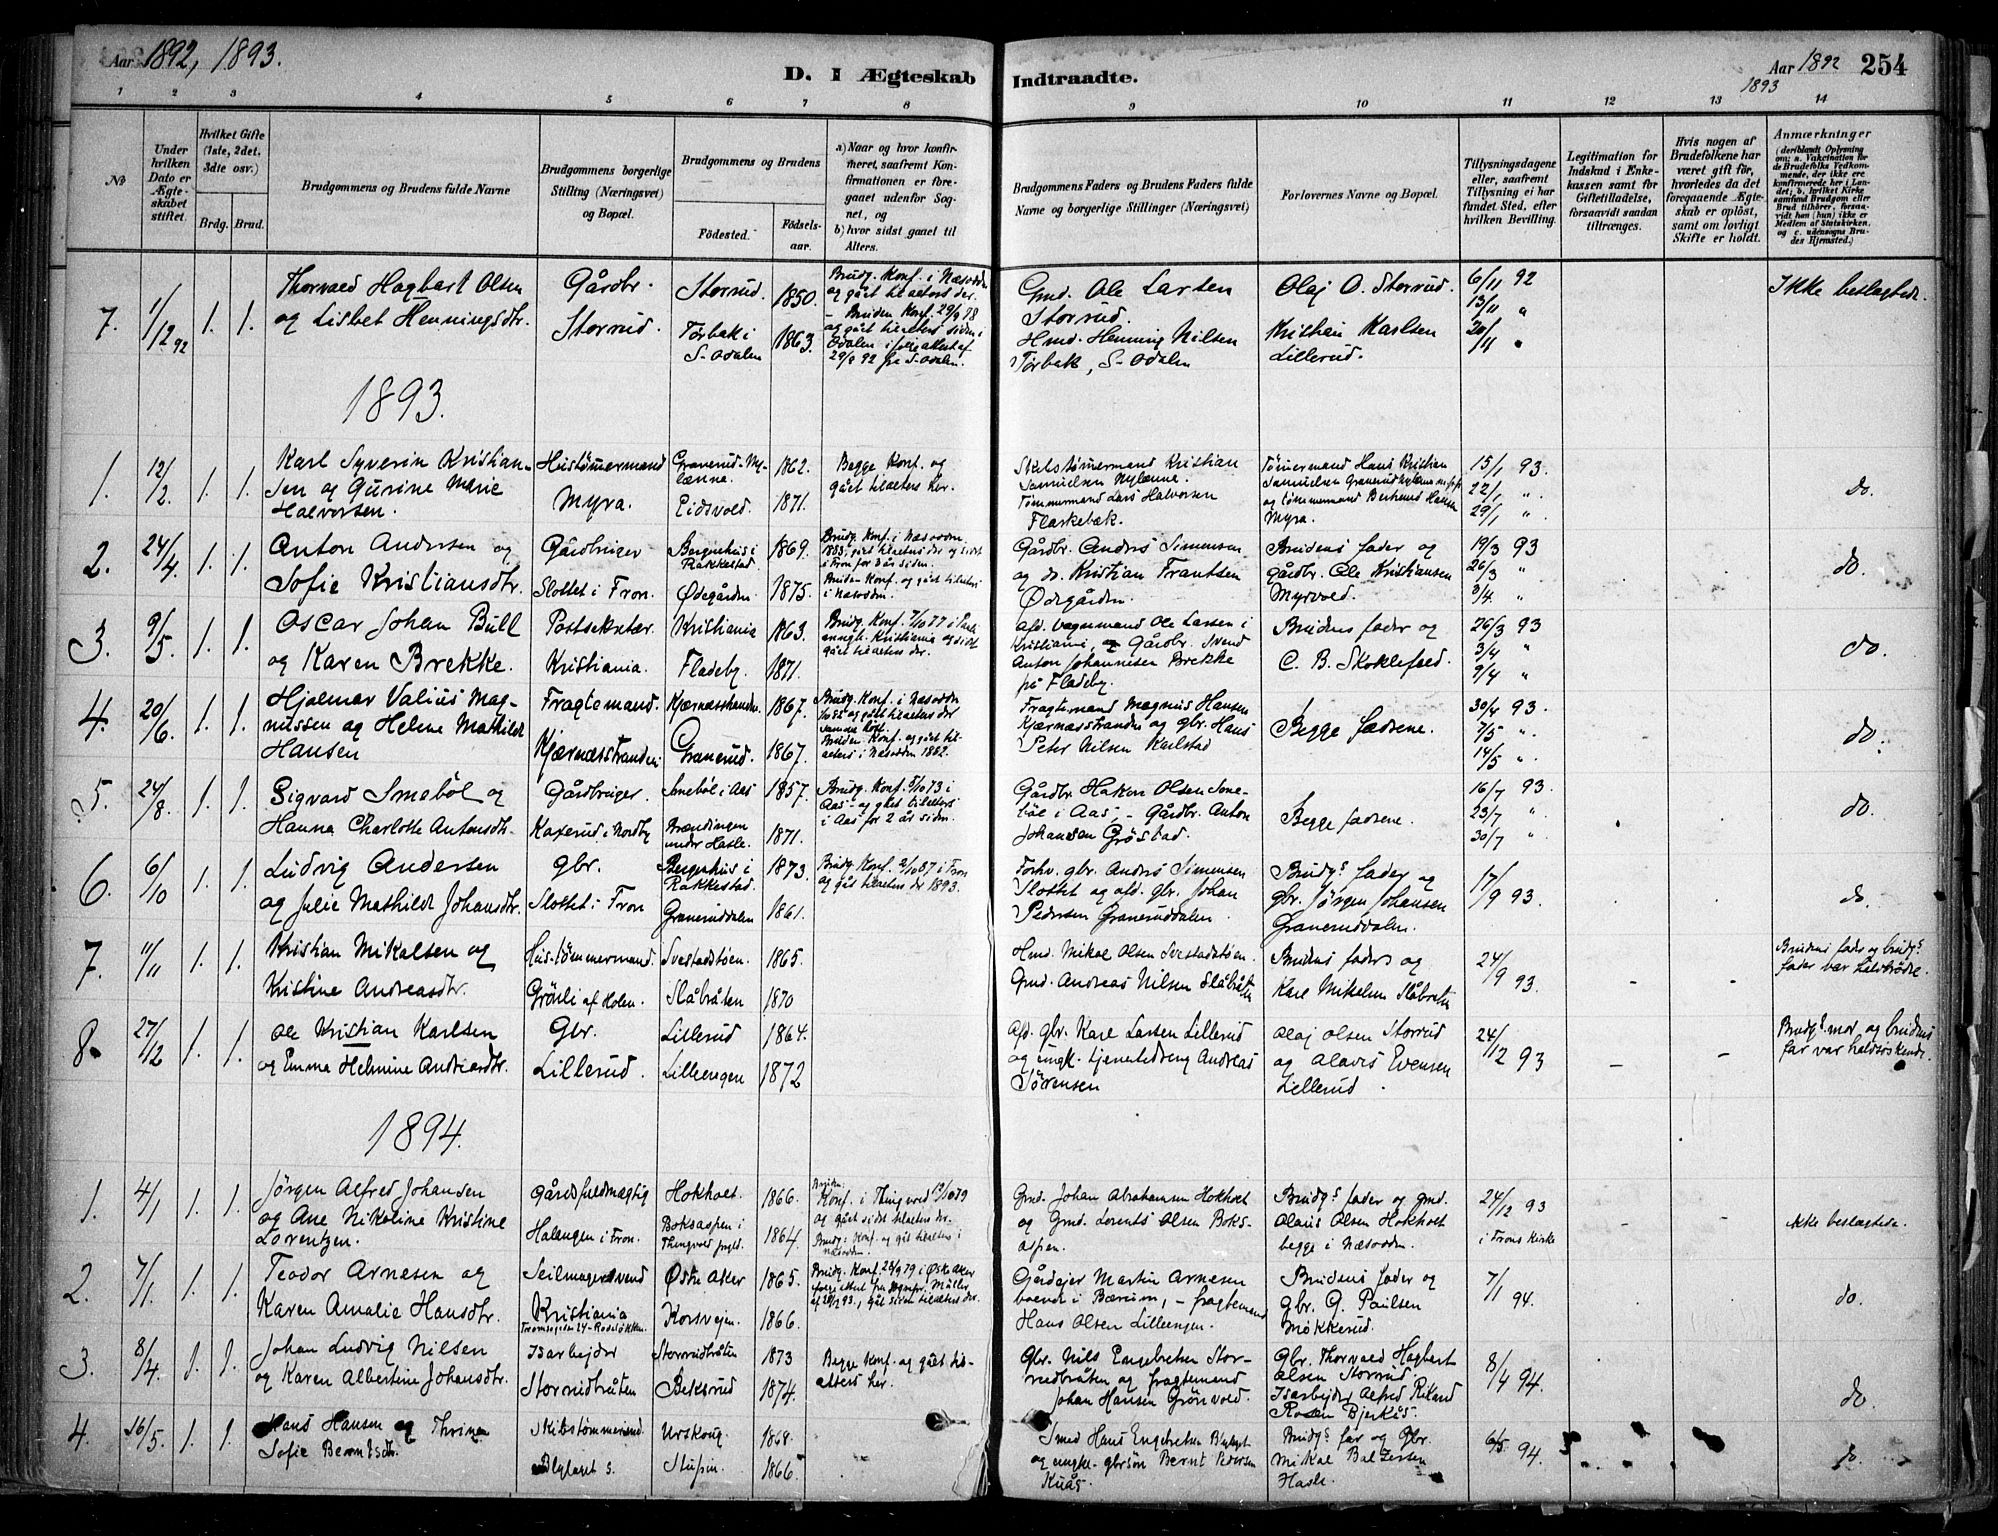 Aar 1892, 1893.
D. I Ægteskab
Indtraadte.
Aar 1892
1893
254
1 2 3 4 5 6 7 8 9 10 11 12 13 14
No
Under hvilken Dato er Ægteskabet stiftet.
Hvilket Gifte (1ste, 2det, 3dte osv.)
Brdg. Brud.
Brudgommens og Brudens fulde Navne
Brudgommens borgerlige Stilling (Næringsvei) og Bopæl.
Brudgommens og Brudens
Fødested.
Fødselsaar.
a) Naar og hvor konfirmeret, saafremt Konfirmationen er foregaaet udenfor Sognet, og
b) hvor sidst gaaet til Alters.
Brudgommens Faders og Brudens Faders fulde Navne og borgerlige Stillinger (Næringsvei)
Forlovernes Navne og Bopæl.
Tillysningsdagene eller, saafremt Tillysning ei har fundet Sted, efter hvilken Bevilling.
Legitimation for Indskud i Enkekassen samt for Giftetilladelse, forsaavidt saadan tiltrænges.
Hvis nogen af Brudefolkene har været gift før, hvorledes da det foregaaende Ægteskab er opløst, samt om lovligt Skifte er holdt.
Anmærkninger
(deriblandt Oplysning om: a. Vakcination for de Brudefolks Vedkommende, der ikke ere konfirmerede her i Landet; b. hvilket Kirkesamfund Brudgom eller Brud tilhører, forsaavidt han (hun) ikke er Medlem af Statskirken, og c. udensogns Brudes Hjemsted.)
7. 1/12 92 1. 1.
Thorvald Hagbart Olsen
og Lisbet Henningsdtr.
Gårdbr.
Storrud.
Storrud. 1850.
Torbak i S-Odalen 1863.
Brudg. Konf. i Næsodden
og gået tilalters der.
- Bruden Konf. 29/9 78
og gået tilalters siden i
Odalen
Gmd. Ole Larsen
Storrud.
Hmd. Henning Nilsen
Torbak, S-Odalen
Olaj O. Storrud.
Kristian Karlsen
Lillerud.
6/11 92
13/11 "
20/11 "
Ikke beslægtede.
1893.
1. 12/2 1. 1.
Karl Syverin Kristian-
sen og Gurine Marie
Halvorsen.
Hustømermand
Myra.
Granerud-Ny-
lænne. 1862.
Eidsvold. 1871.
Begge Konf. og
gået tilalters her.
Skibstømermand Kristian
Samuelsen Nylænne.
Tømmermand Lars Halvorsen
Flaskebæk.
Tømermand Hans Kristian
Samuelsen
og tømmermand Berthuid Hansen
Myra.
15/1 93.
22/1 "
29/1 "
do.
2. 24/4 1. 1.
Anton Andersen og
Sofie Kristiansdtr.
Gårdbruger
Slottet i Fron.
Bergenhus i
Rakkestad 1869.
Ødegården 1875.
Brudg. Konf. i Næsodden
1883, gået tilalters der og sidst
i Fron for 3 år siden.
Bruden Konf. og gået tilalters
i Næsodden.
Gårdbr. Anders Simensen
og do. Kristian Frantsen
Ødegården.
Brudens fader og
gårdbr. Ole Kristiansen
Myrvold.
19/3 93
26/3 "
3/4. "
do.
3. 9/5 1. 1.
Oscar Johan Bull
og Karen Brekke.
Postsekretær
Kristiania.
Kristiania 1863.
Fladeby 1871.
Brudg. Konf. 7/10 77 i
Kristiania og sidst
gået tilalters der.
Afd. vognmand Ole Larsen i
Kristiania, og Gårdbr. Svend
Anton Johannesen Brekke
på Fladeby.
Brudens fader og
C. B. Skoklefald.
26/3 93
3/4 "
9/4 "
do.
4. 20/6 1. 1.
Hjalmar Valius Mag-
nussen og Helene Mathilde
Hansen
Fragtemand.
Kjærnæsstranden
Kjærnæsstranden. 1867.
Granerud. 1867.
Brudg. Konf. i Næsodden
1882 og gået tilalters der
samme høst.
Bruden Konf. og gået til-
alters i Næsodden 1882.
Fragtemand Magnus Hansen
Kjærnæsstranden og gbr. Hans
Peter Nilsen Karlstad
Begge fædrene.
30/4 93.
7/5 ".
14/5 "
do.
5. 24/8 1. 1.
Sigvard Smebøl og
Hanna Charlotte Antonsdtr.
Gårdbruger
Kaxerud i Nordby
Smebøl i Aas 1857.
Brændingen
under Hasle. 1871.
Brudg. Konf. 5/10 73 i
Aas og gået tilalters
i Aas for 2 år siden.
Gårdbr. Hakon Olsen Sme-
bøl i Aas, - Gårdbr. Anton
Johansen Grøstad.
Begge fædrene.
16/7 93.
23/7 "
30/7 "
do.
6. 6/10 1. 1.
Ludvig Andersen
og Julie Mathilde Johansdtr.
gbr.
Slottet i Fron
Bergenhus i
Rakkestad. 1873.
Graneruddalen 1861.
Brudg. Konf. 2/10 87 i Fron
og gået tilalters der 1893.
Forhv. gbr. Anders Simensen
Slottet og afd. gbr. Johan
Pedersen Graneruddalen.
Brudgs fader og
gbr. Jørgen Johansen
Graneruddalen.
17/9 93.
do.
7. 11/11 1. 1.
Kristian Mikalsen og
Kristine Andreasdtr.
Hus-tømmermand.
Grønli af Holen.
Svestadstøen. 1865.
Slåbråten 1870
Hmd. Mikal Olsen Svestadstøen.
Gmd. Andreas Nilsen Slåbråten
Brudens faders og
Karl Mikalsen Slåbråten
24/9 93.
Brudens fader og brudgs
fader var halvbrødre.
8. 27/12 1. 1.
Ole Kristian Karlsen
og Emma Helmine Andreasdtr.
Gbr.
Lillerud.
Lillerud 1864.
Lilleengen 1872
Afd. gbr. Karl Larsen Lillerud
og ungk. tjenestedreng Andreas
Sørensen
Olaj Olsen Storrud
og Olavis Evensen
Lillerud.
24/12 93
Brudgs mor og brudens
far var halvsøskende.
1894.
1. 4/1 1. 1.
Jørgen Alfred Johansen
og Ane Nikoline Kristine
Lorentzen.
Gårdsfuldmægtig
Halangen i Fron.
Hokholt. 1866.
Boksaspen i
Thingvold prgld. 1864.
Bruden
Konf. i Thingvold 12/10 79
og gået sidst tilalters der.
Brudg. Konf. og gået tilalters i
Næsodden.
Gmd. Johan Abrahamsen Hokholt
og Gmd. Lorents Olsen Boks-
aspen.
Brudgs fader og gmd.
Olaus Olsen Hokholt
begge i Næsodden.
24/12 93
i Frons Kirke
ikke beslægtede.
2. 7/1 1. 1.
Teodor Arnesen og
Karen Amalie Hansdtr.
Seilmagersvend
Kristiania
Østre Aker 1865.
Korsvejen. 1866.
Brudg. Konf. 28/9 79 i Østre Aker
Gårdejer Martin Arnesen
boende i Bærum, - fragtemand
Hans Olsen Lilleengen.
Brudens fader og
gbr. G. Paulsen
Møkkerud.
7/1 94.
do.
3. 8/4 1. 1.
Johan Ludvig Nilsen
og Karen Albertine Johansdtr.
Isarbejder
Storrudbråten
Storrudbråten 1873
Bekkerud 1874.
Begge Konf. og gået til-
alters her.
Gbr. Nils Engebretsen Stor-
rudbråten og fragtemand
Johan Hansen Grønvold.
Gbr. Thorvald Hagbart
Olsen Storrud.
Isarbejder Alfred Rikard
Bjerkås.
8/4 94.
do
4. 16/5. 1. 1.
Hans Hansen og Thrine
Sofie Berntsdtr.
Skibstømmermd.
Blylaget s.
Urskoug. 1868.
Stupin. 1866.
Smed Hans Engebretsen Blylaget
og ungk. gbrsøn Bernt Pedersen
Kuås.
Brudgs far og Gbr.
Mikal Baltzersen
Hasle.
6/5. 94.
do.